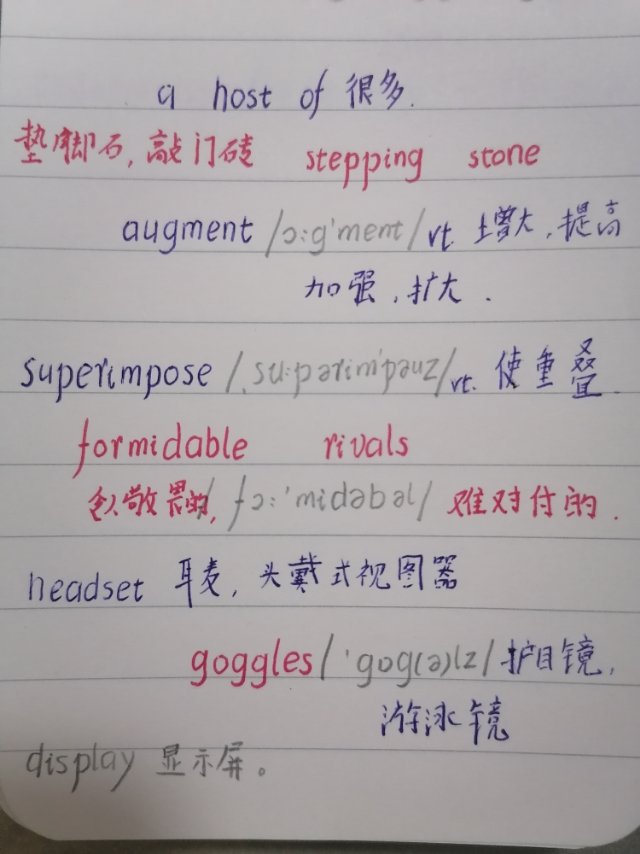 a host of 很多.
垫脚石, 敲门砖 stepping stone
augment /ɔ:g'ment/ vt. 增大, 提高
加强, 扩大.
superimpose /ˌsu:pərim'pəuz/ vt. 使重叠.
formidable rivals
令人敬畏的, /fɔ:'midəbəl/ 难对付的.
headset 耳麦, 头戴式视图器
goggles /'gɒg(ə)lz/ 护目镜,
游泳镜
display 显示屏。